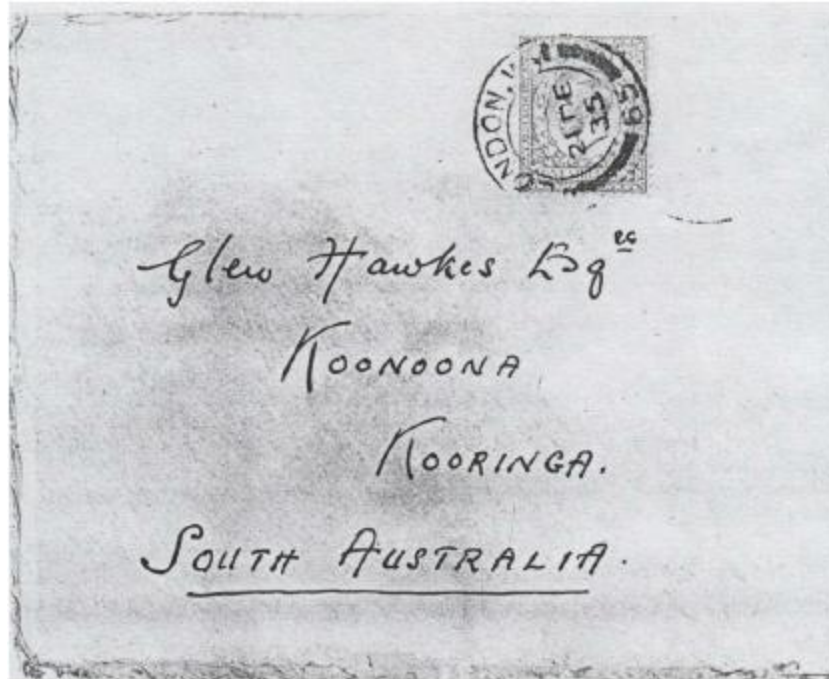 LONDON, W
21 FE
35
65
Glen Hawkes Esqre
KOONOONA
KOORINGA.
SOUTH AUSTRALIA.